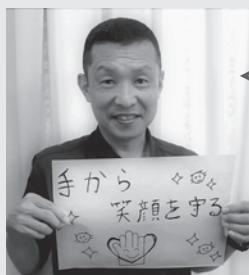 手から
笑顔を守る